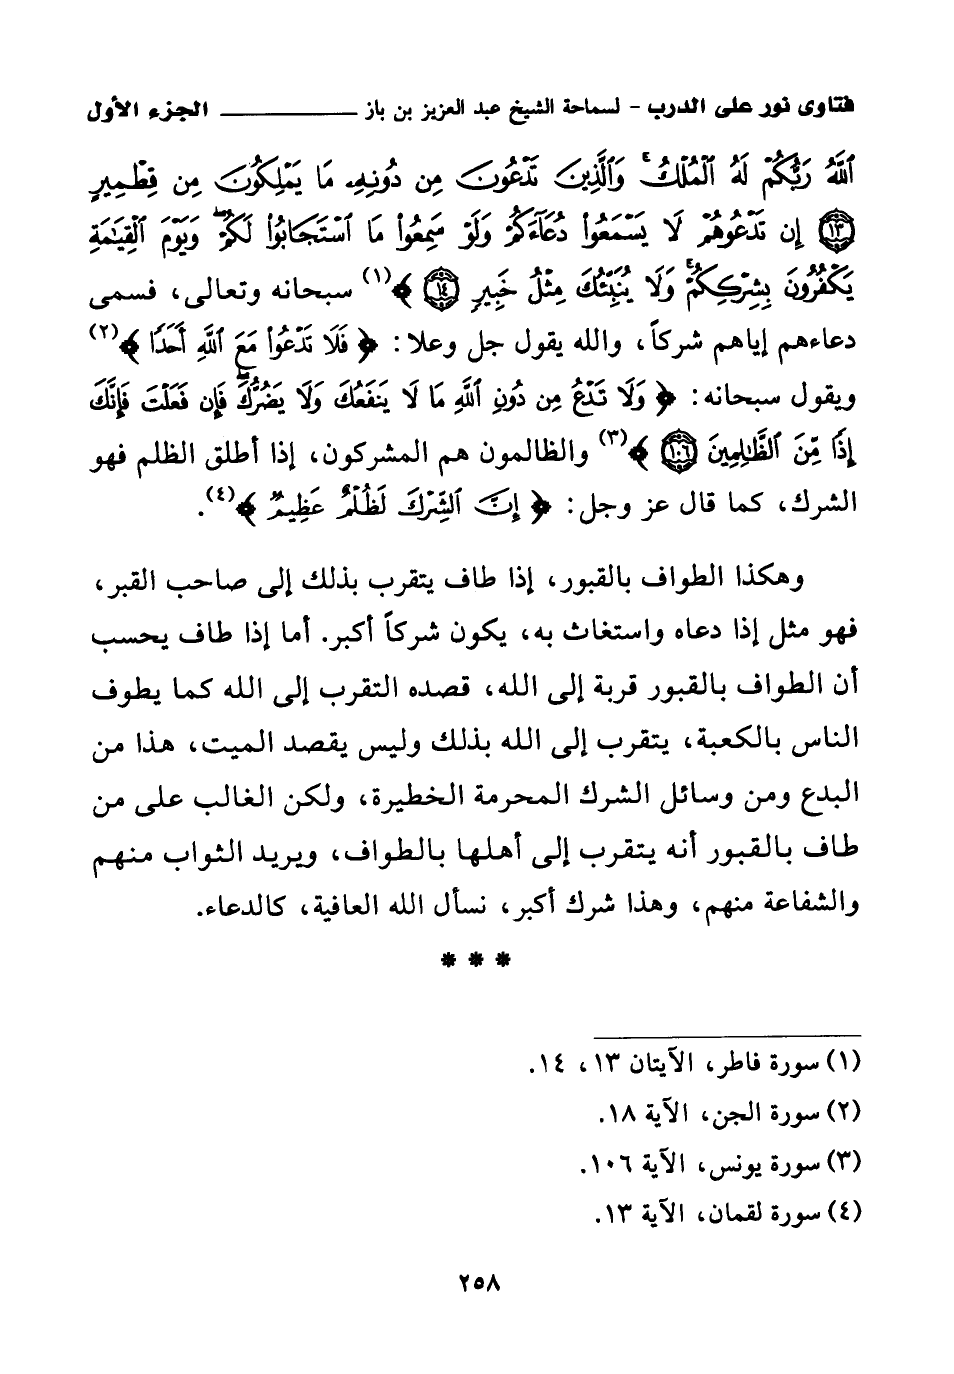 فتاوى نور على الدرب - لسماحة الشيخ عبد العزيز بن باز ــــــــــــ الجزء الأول
ٱللَّهُ رَبُّكُمۡ لَهُ ٱلۡمُلۡكُۚ وَٱلَّذِينَ تَدۡعُونَ مِن دُونِهِۦ مَا يَمۡلِكُونَ مِن قِطۡمِيرٍ
﴿١٣﴾ إِن تَدۡعُوهُمۡ لَا يَسۡمَعُواْ دُعَآءَكُمۡ وَلَوۡ سَمِعُواْ مَا ٱسۡتَجَابُواْ لَكُمۡۖ وَيَوۡمَ ٱلۡقِيَٰمَةِ
يَكۡفُرُونَ بِشِرۡكِكُمۡۚ وَلَا يُنَبِّئُكَ مِثۡلُ خَبِيرٍ ﴿١٤﴾ ﴾(١) سبحانه وتعالى، فسمى
دعاءهم إياهم شركاً، والله يقول جل وعلا: ﴿ فَلَا تَدۡعُواْ مَعَ ٱللَّهِ أَحَدٗا ﴾(٢)
ويقول سبحانه: ﴿ وَلَا تَدۡعُ مِن دُونِ ٱللَّهِ مَا لَا يَنفَعُكَ وَلَا يَضُرُّكَۖ فَإِن فَعَلۡتَ فَإِنَّكَ
إِذٗا مِّنَ ٱلظَّٰلِمِينَ ﴿١٠٦﴾ ﴾(٣) والظالمون هم المشركون، إذا أطلق الظلم فهو
الشرك، كما قال عز وجل: ﴿ إِنَّ ٱلشِّرۡكَ لَظُلۡمٌ عَظِيمٞ ﴾(٤).
وهكذا الطواف بالقبور، إذا طاف يتقرب بذلك إلى صاحب القبر،
فهو مثل إذا دعاه واستغاث به، يكون شركاً أكبر. أما إذا طاف يحسب
أن الطواف بالقبور قربة إلى الله، قصده التقرب إلى الله كما يطوف
الناس بالكعبة، يتقرب إلى الله بذلك وليس يقصد الميت، هذا من
البدع ومن وسائل الشرك المحرمة الخطيرة، ولكن الغالب على من
طاف بالقبور أنه يتقرب إلى أهلها بالطواف، ويريد الثواب منهم
والشفاعة منهم، وهذا شرك أكبر، نسأل الله العافية، كالدعاء.
* * *
(١) سورة فاطر، الآيتان ١٣، ١٤.
(٢) سورة الجن، الآية ١٨.
(٣) سورة يونس، الآية ١٠٦.
(٤) سورة لقمان، الآية ١٣.
٢٥٨